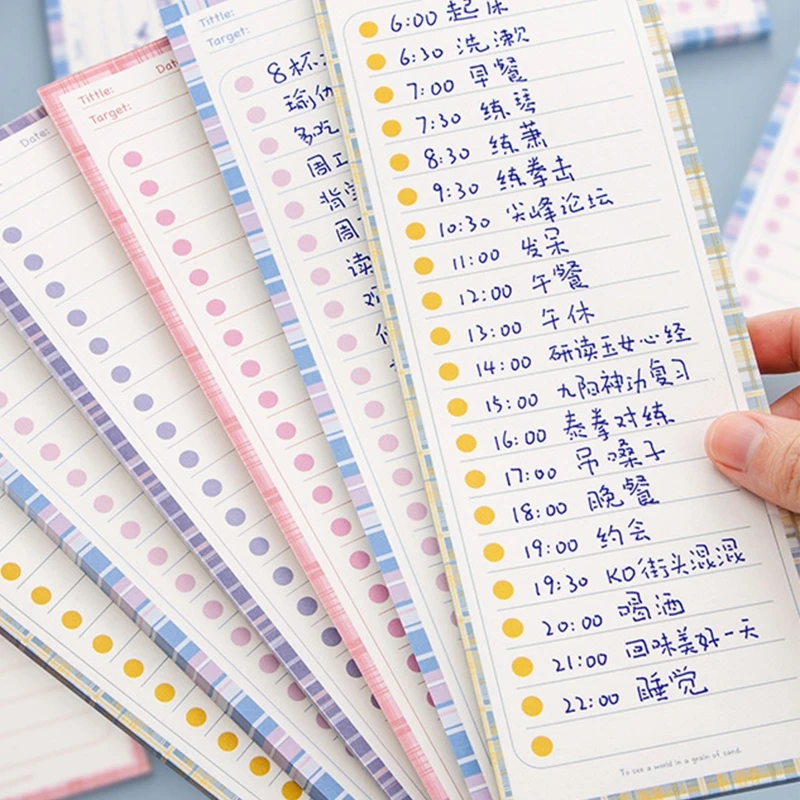 6:00 起床
6:30 洗漱
7:00 早餐
7:30 练琴
8:30 练萧
9:30 练拳击
10:30 尖峰论坛
11:00 发呆
12:00 午餐
13:00 午休
14:00 研读玉女心经
15:00 九阳神功复习
16:00 泰拳对练
17:00 吊嗓子
18:00 晚餐
19:00 约会
19:30 KO街头混混
20:00 喝酒
21:00 回味美好一天
22:00 睡觉
To see a world in a grain of sand.
Tittle:
Target:
8杯
瑜伽
多吃
周工
背
周
读
Tittle:
Date:
Target:
Date: